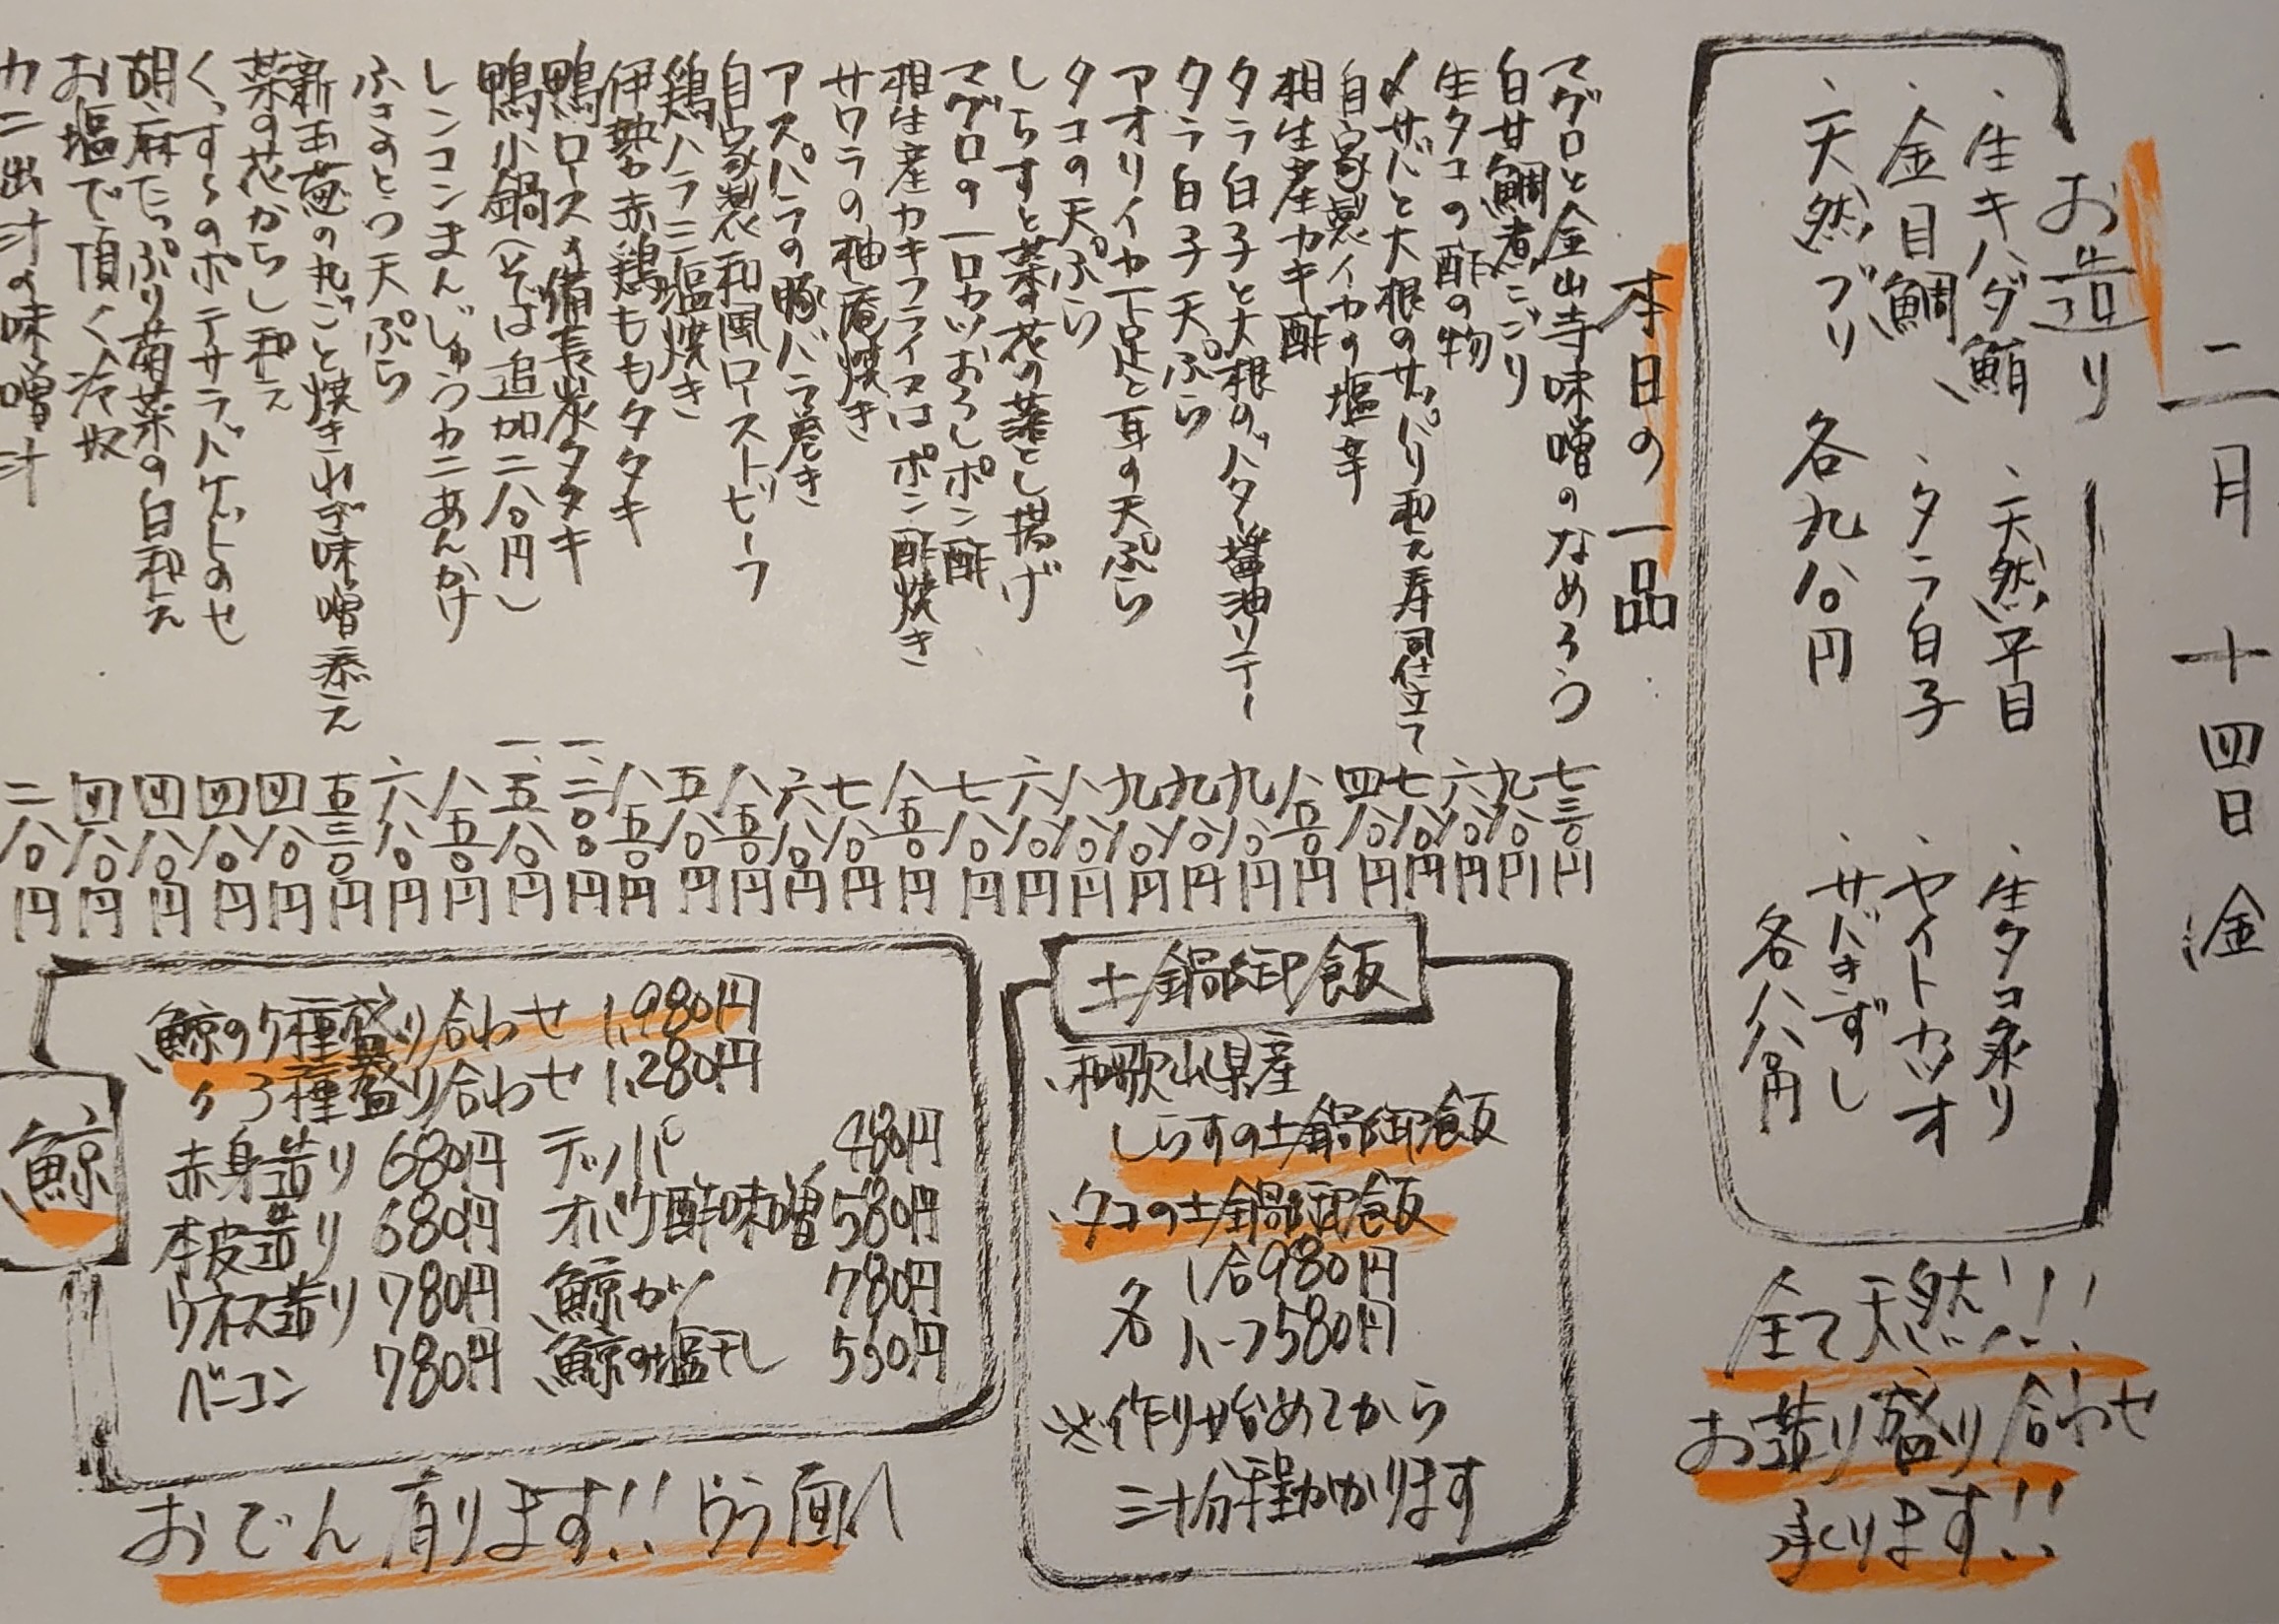 二月 十四日 金
お造り
・生キハダ鮪 ・天然平目 ・生タコ炙り
・金目鯛 ・タラ白子 ・ヤイトカツオ
・天然ブリ 各九八〇円 ・サバきずし
各八八〇円
全て天然!!
お造り盛り合わせ
承ります!!
本日の一品
マグロと金山寺味噌のなめろう 七三〇円
白甘鯛煮こごり 九八〇円
生タコの酢の物 六八〇円
〆サバと大根のサッパリ和え寿司仕立て 七八〇円
自家製イカの塩辛 四八〇円
相生産カキ酢 八五〇円
タラ白子と大根のバター醤油ソテー 九八〇円
タラ白子天ぷら 九八〇円
アオリイカ下足と耳の天ぷら 九八〇円
タコの天ぷら 八八〇円
しらすと菜の花の落とし揚げ 六八〇円
マグロの一口カツおろしポン酢 七八〇円
相生産カキフライ又はポン酢焼き 八五〇円
サワラの柚庵焼き 七八〇円
アスパラの豚バラ巻き 六八〇円
自家製和風ローストビーフ 八五〇円
鶏ハラミ塩焼き 五八〇円
伊勢赤鶏ももタタキ 八五〇円
鴨ロースの備長炭タタキ 一、二〇〇円
鴨小鍋(そば追加二八〇円) 一、五八〇円
レンコンまんじゅうカニあんかけ 八五〇円
ふきのとう天ぷら 六八〇円
新玉葱の丸ごと焼きねぎ味噌添え 五三〇円
菜の花からし和え 四八〇円
くっすぅのポテサラバゲットのせ 四八〇円
胡麻たっぷり菊菜の白和え 四八〇円
お塩で頂く冷奴 四八〇円
カニ出汁の味噌汁 二八〇円
土鍋御飯
・和歌山県産
しらすの土鍋御飯
・タコの土鍋御飯
各 1合980円
ハーフ580円
※作り始めてから
三十分程かかります
鯨
鯨の5種盛り合わせ 1,980円
〃 3種盛り合わせ 1,280円
赤身造り 680円 テッパ 480円
本皮造り 680円 オバケ酢味噌 580円
ウネス造り 780円 鯨カツ 780円
ベーコン 780円 鯨の塩干し 550円
おでん有ります!! ウラ面へ